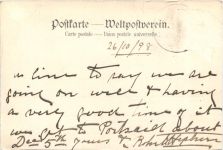 Postkarte — Weltpostverein.
Carte postale — Union postale universelle.
26/10/98
a line to say we are
going on well & having
a very good time of it
we get to Portsaid about
Dec 5th yours